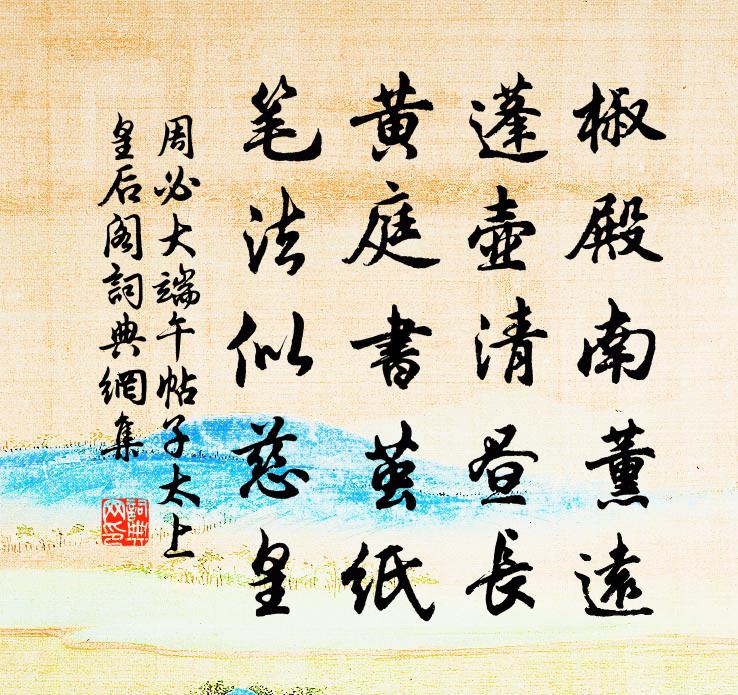 椒殿南薰遠
蓬壺清昼長
黃庭書茧紙
笔法似慈皇
周必大端午帖子太上
皇后阁詞典網集